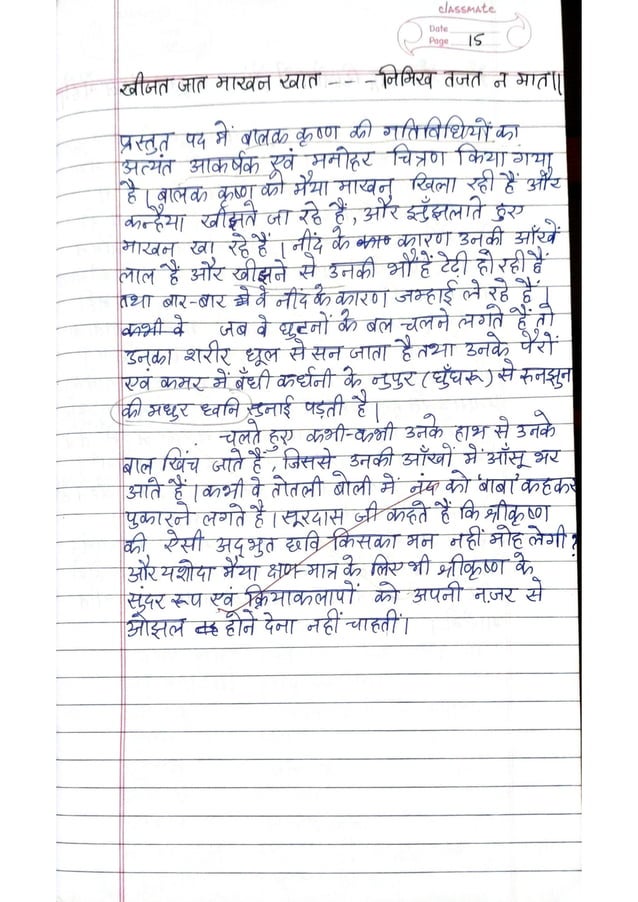 classmate
Date
Page 15
खीजत जात माखन खात --- -निमिख तजत न मात॥
प्रस्तुत पद में बालक कृष्ण की गतिविधियों का
अत्यंत आकर्षक एवं मनोहर चित्रण किया गया
है। बालक कृष्ण को मैया माखन खिला रही हैं और
कन्हैया खीझते जा रहे हैं, और झुँझलाते हुए
माखन खा रहे हैं। नींद के कारण उनकी आँखें
लाल हैं और खीझने से उनकी भौंहें टेढ़ी हो रही हैं
तथा बार-बार वे नींद के कारण जम्हाई ले रहे हैं।
कभी वे जब वे घुटनों के बल चलने लगते हैं तो
उनका शरीर धूल से सन जाता है तथा उनके पैरों
एवं कमर में बँधी कर्धनी के नुपुर (घुँघरू) से रुनझुन
की मधुर ध्वनि सुनाई पड़ती है।
चलते हुए कभी-कभी उनके हाथ से उनके
बाल खिंच जाते हैं, जिससे उनकी आँखों में आँसू भर
आते हैं। कभी वे तोतली बोली में नंद को 'बाबा' कहकर
पुकारने लगते हैं। सूरदास जी कहते हैं कि श्रीकृष्ण
की ऐसी अद्भुत छवि किसका मन नहीं मोह लेगी?
और यशोदा मैया क्षण-मात्र के लिए भी श्रीकृष्ण के
सुंदर रूप एवं क्रियाकलापों को अपनी नज़र से
ओझल होने देना नहीं चाहतीं।